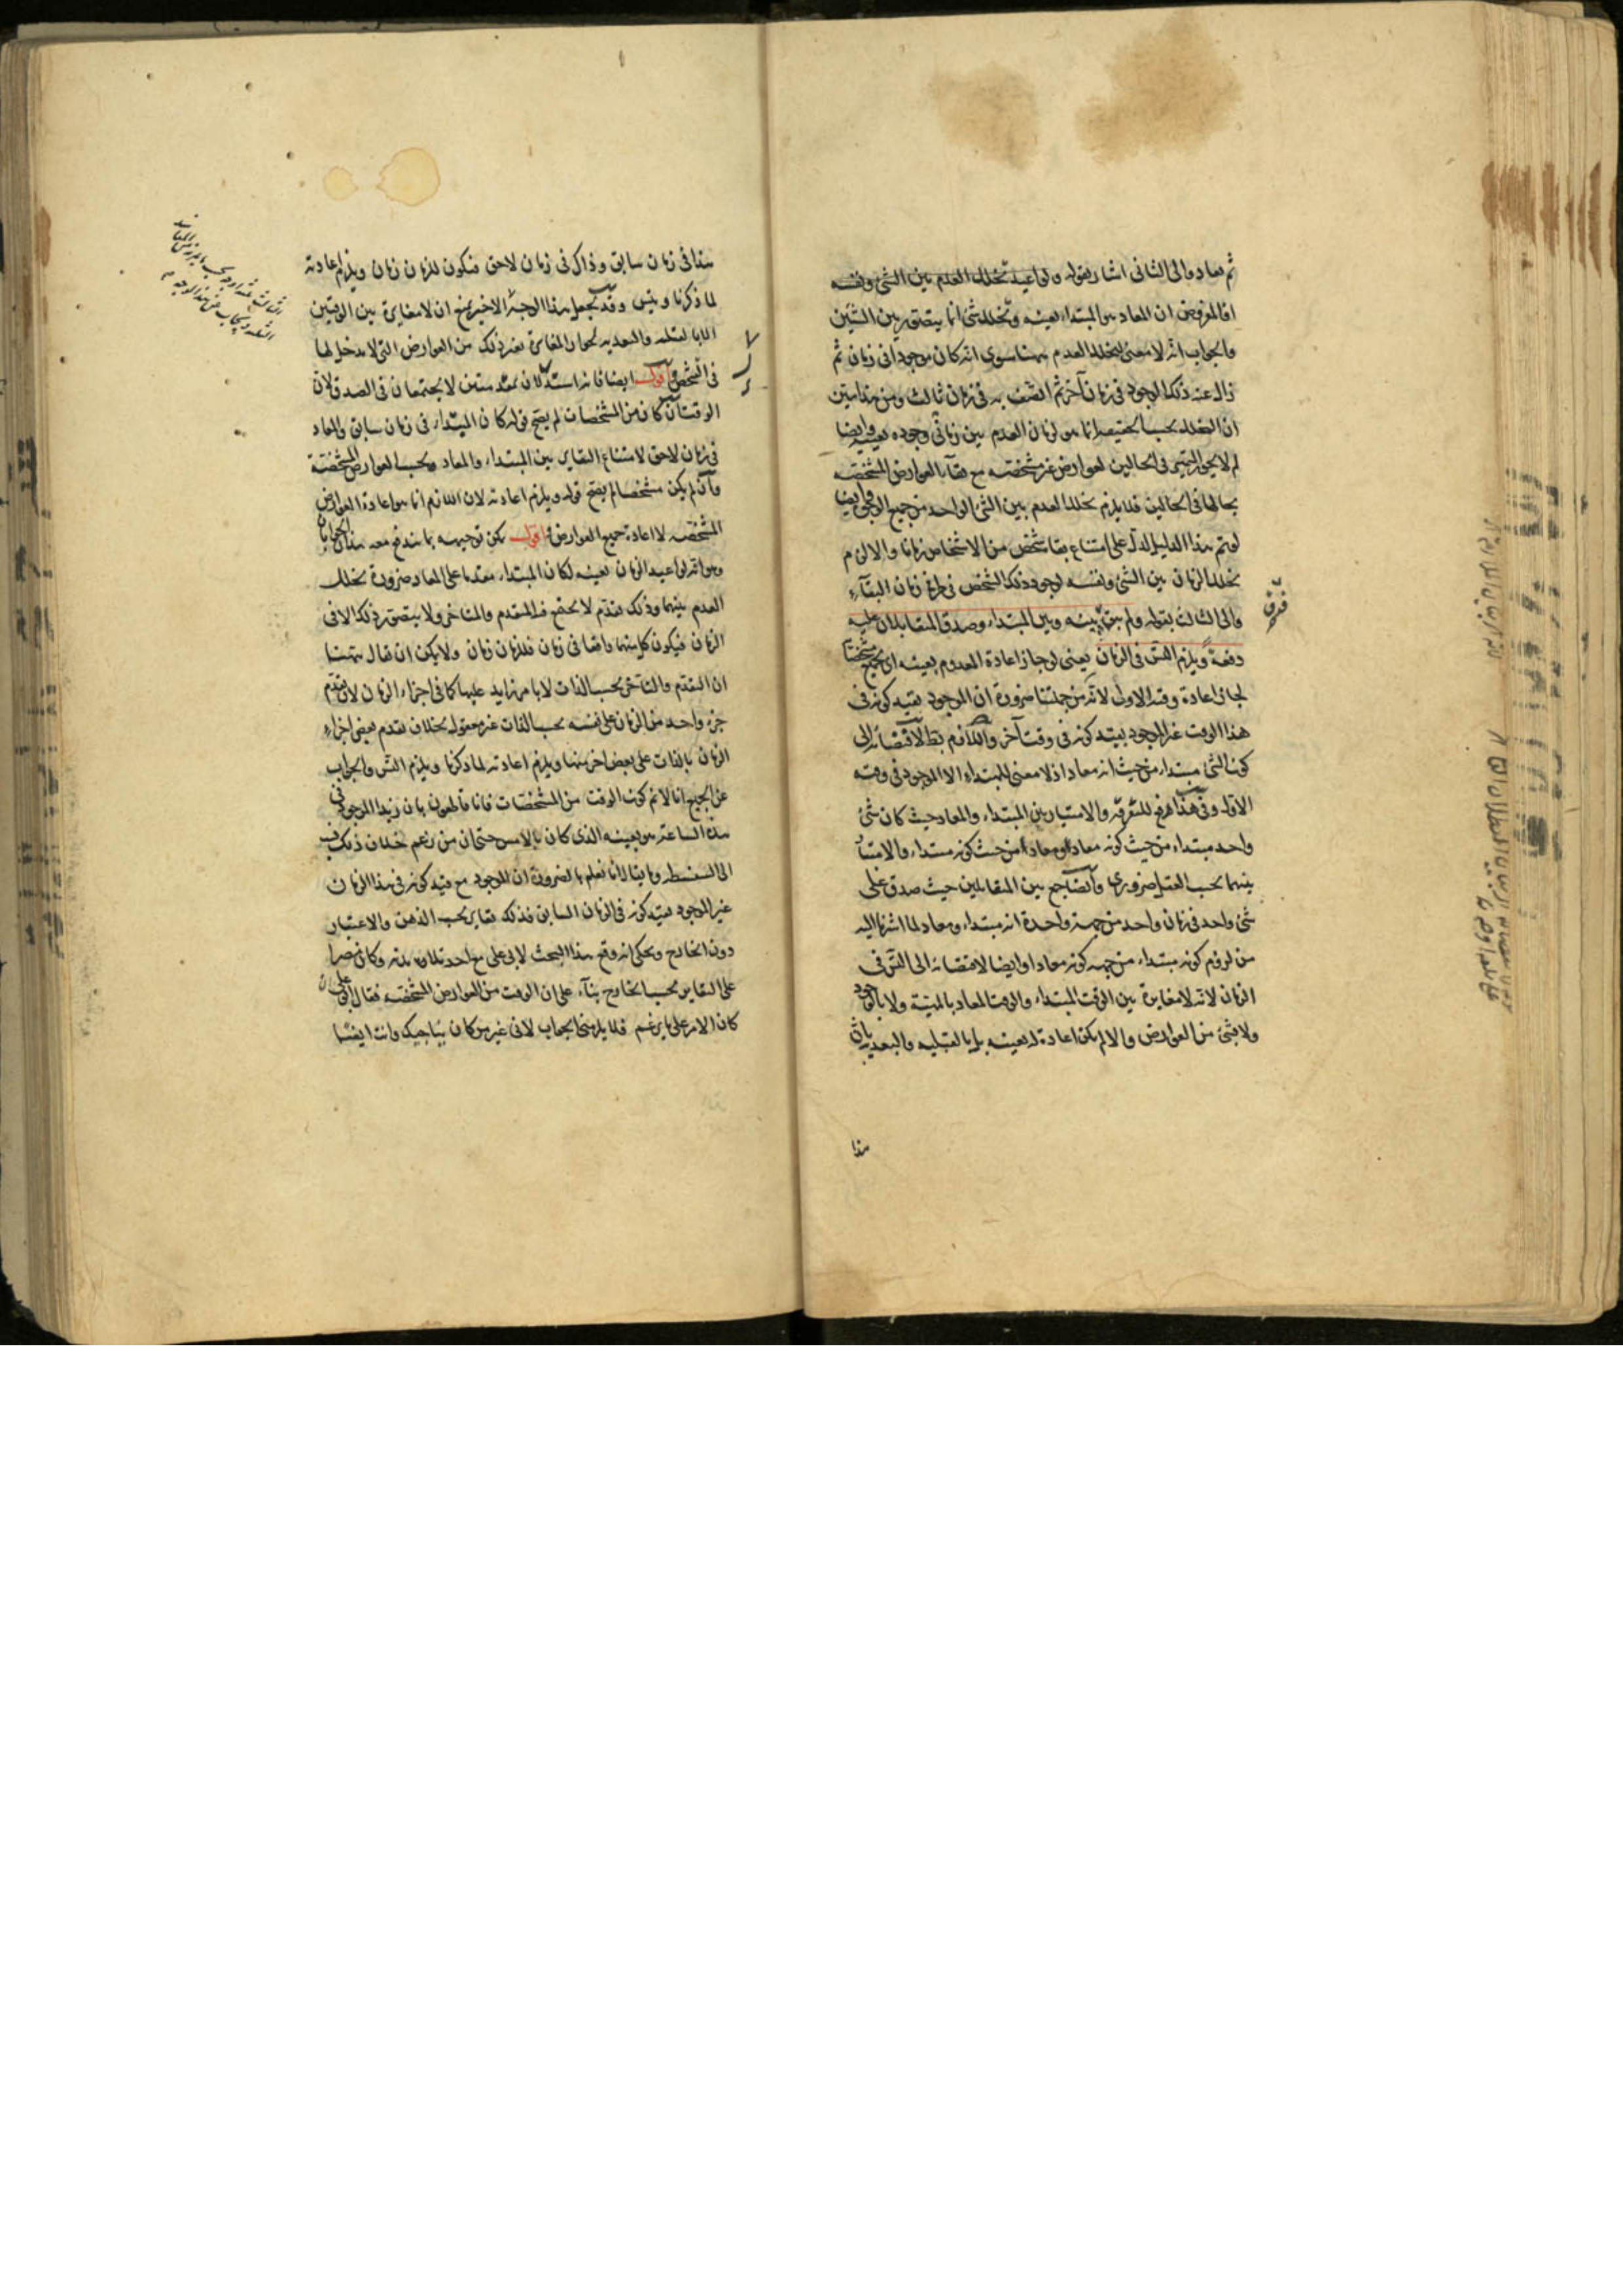 ثم يعاد والى الثانى اشار بقوله ولو اعيد تخلل العدم بين الشئ ونفسه
اذ المفروض ان المعاد هو المبتداء بعينه وتخلل شئ انما يتصور بين الشيئين
والجواب انه لا معنى لتخلل العدم ههنا سوى انه كان موجودا فى زمان ثم
زال عنه ذلك الوجود فى زمان آخر ثم اتصف به فى زمان ثالث ومن هنا تبين
ان التخلل بحسب الحقيقة انما هو لزمان العدم بين زمانى وجوده بعينه وايضا
لم لا يجوز التميز فى الحالين لعوارض غير مشخصه مع بقاء العوارض المشخصه
بحالها فى الحالين فلا يلزم تخلل العدم بين الشئ الواحد من جميع الوجوه وايضا
لو تم هذا الدليل لدل على امتناع بقاء شخص من الاشخاص زمانا والا لزم
تخلل الزمان بين الشئ ونفسه لوجود ذلك الشخص فى طرفى زمان البقاء
والى الثالث بقوله ولم يبق بينه وبين المبتداء وصدق المتقابلان عليه
فرق
دفعة ويلزم التس فى الزمان يعنى لو جاز اعادة المعدوم بعينه اى بجميع مشخصاته
لجاز اعادة وقته الاول لانه من جملتها ضرورة ان الموجود بقيد كونه فى
هذا الوقت غير الموجود بقيد كونه فى وقت آخر واللازم بط لافضائه الى
كون الشئ مبتداء من حيث انه معاد اذ لا معنى للمبتداء الا الموجود فى وقته
الاول وفى هذا رفع للتفرقه والامتياز بين المبتداء والمعاد حيث كان شئ
واحد مبتداء من حيث كونه معادا ومعادا من حيث كونه مبتداء والامتياز
بينهما بحسب العقل ضرورى وايضا جمع بين المتقابلين حيث صدق على
شئ واحد فى زمان واحد من جهة واحدة انه مبتداء ومعاد لما اشرنا اليه
من لزوم كونه مبتداء من جهه كونه معادا وايضا لافضائه الى التس فى
الزمان لانه لا مغايرة بين الوقت المبتداء والوقت المعاد بالمهية ولا بالوجود
ولا بشئ من العوارض والا لم يكن اعادة له بعينه بل بالقبليه والبعديه بان
هذا
هذا فى زمان سابق وذاك فى زمان لاحق فيكون للزمان زمان ويلزم اعادته
لما ذكرنا ويتس وقد يجعل هذا الوجه الاخير بمنع ان لا مغايرة بين الوقتين
الا بالقبليه والبعديه لجواز المغايرة بغير ذلك من العوارض التى لا مدخل لها
فى التشخص اقول ايضا فانه استدلال بمقدمتين لا يجتمعان فى الصدق لان
الوقت ان كان من المشخصات لم يصح قوله كان المبتداء فى زمان سابق والمعاد
فى زمان لاحق لامتناع التغاير بين المبتداء والمعاد بحسب العوارض المشخصة
وان لم يكن مشخصا لم يصح قوله ويلزم اعادته لان اللازم انما هو اعادة العوارض
المشخصه لا اعادة جميع العوارض اقول يمكن توجيهه بما يندفع معه هذان الجوابان
وهو انه لو اعيد الزمان بعينه لكان المبتداء مقدما على المعاد ضرورة تخلل
العدم بينهما وذلك تقدم لا يجتمع فيه المتقدم والمتاخر ولا يتصور ذلك الا فى
الزمان فيكون كل منهما واقعا فى زمان فللزمان زمان ولا يمكن ان يقال ههنا
ان التقدم والتاخر بحسب الذات لا بامر زايد عليها كما فى اجزاء الزمان لان تقدم
جزء واحد من الزمان على نفسه بحسب الذات غير معقول بخلاف تقدم بعض اجزاء
الزمان بالذات على بعض اخر منها ويلزم اعادته لما ذكرنا ويلزم التس والجواب
عن الجميع انا لا نم كون الوقت من المشخصات فانا قاطعون بان زيدا الموجود فى
هذه الساعة هو بعينه الذى كان بالامس حتى ان من زعم خلاف ذلك نسب
الى السفسطه وما يقال انا نعلم بالضرورة ان الموجود مع قيد كونه فى هذا الزمان
غير الموجود بقيد كونه فى الزمان السابق فذلك تغاير بحسب الذهن والاعتبار
دون الخارج ويحكى انه وقع هذا البحث لابى على مع احد تلامذته وكان مصرا
على التغاير بحسب الخارج بناء على ان الوقت من العوارض المشخصه فقال ابو على ان
كان الامر على ما تزعم فلا يلزمنى الجواب لانى غير من كان يباحثك وانت ايضا